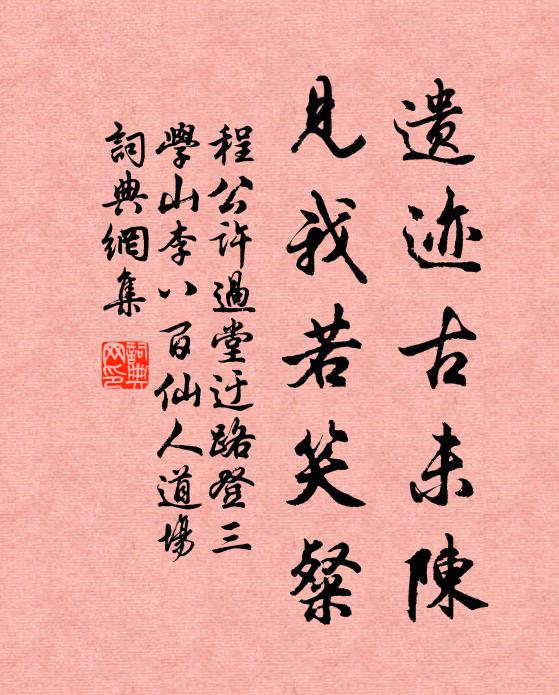 遗迹古未陳
見我若笑粲
程公许過堂迂路登三
學山李八百仙人道場
詞典網集
詞典網印